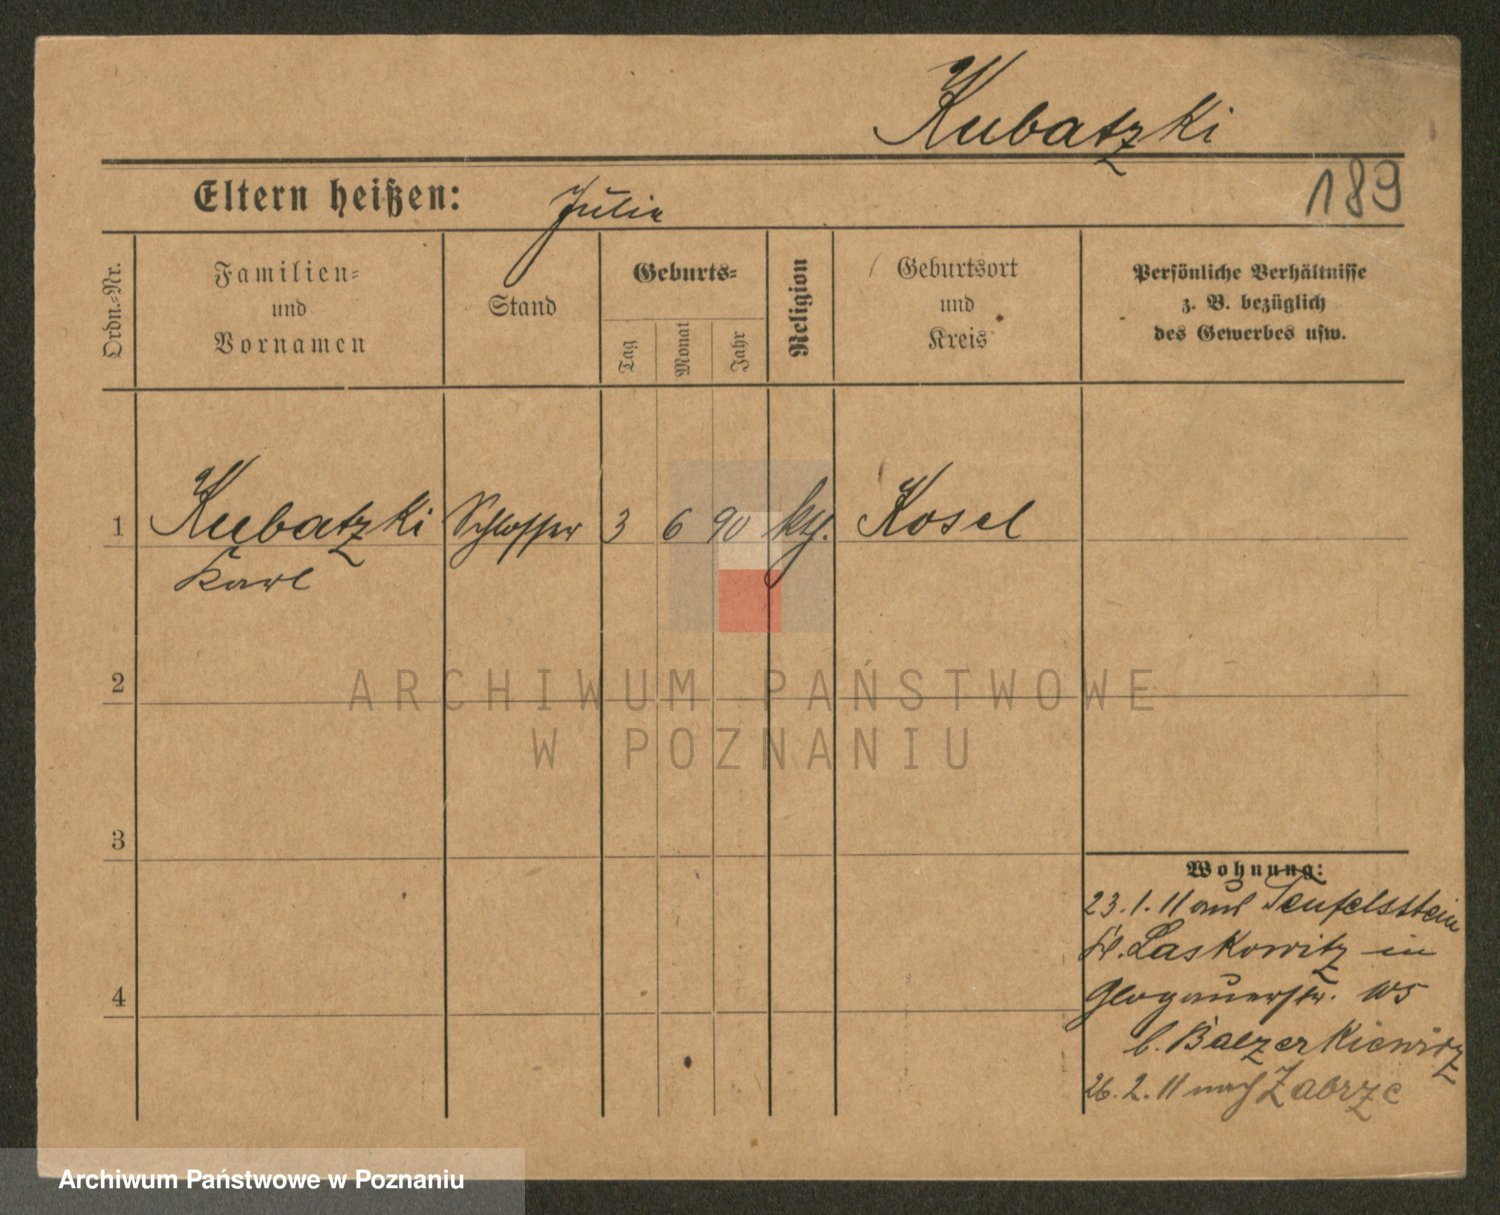 Kubatzki
189
Eltern heißen: Julia
Ordn.=Nr.
Familien=
und
Vornamen
Stand
Geburts=
Tag
Monat
Jahr
Religion
Geburtsort
und
Kreis
Persönliche Verhältnisse
z. B. bezüglich
des Gewerbes usw.
1 Kubatzki Schlosser 3 6 90 Kosel
Karl
2
3
4
Wohnung:
23.1.11 aus Teufelsstein
Laskowitz in
Glogauerstr. 105
b. Baezerkiewicz
26.2.11 nach Zabrze
ARCHIWUM PAŃSTWOWE
W POZNANIU
Archiwum Państwowe w Poznaniu